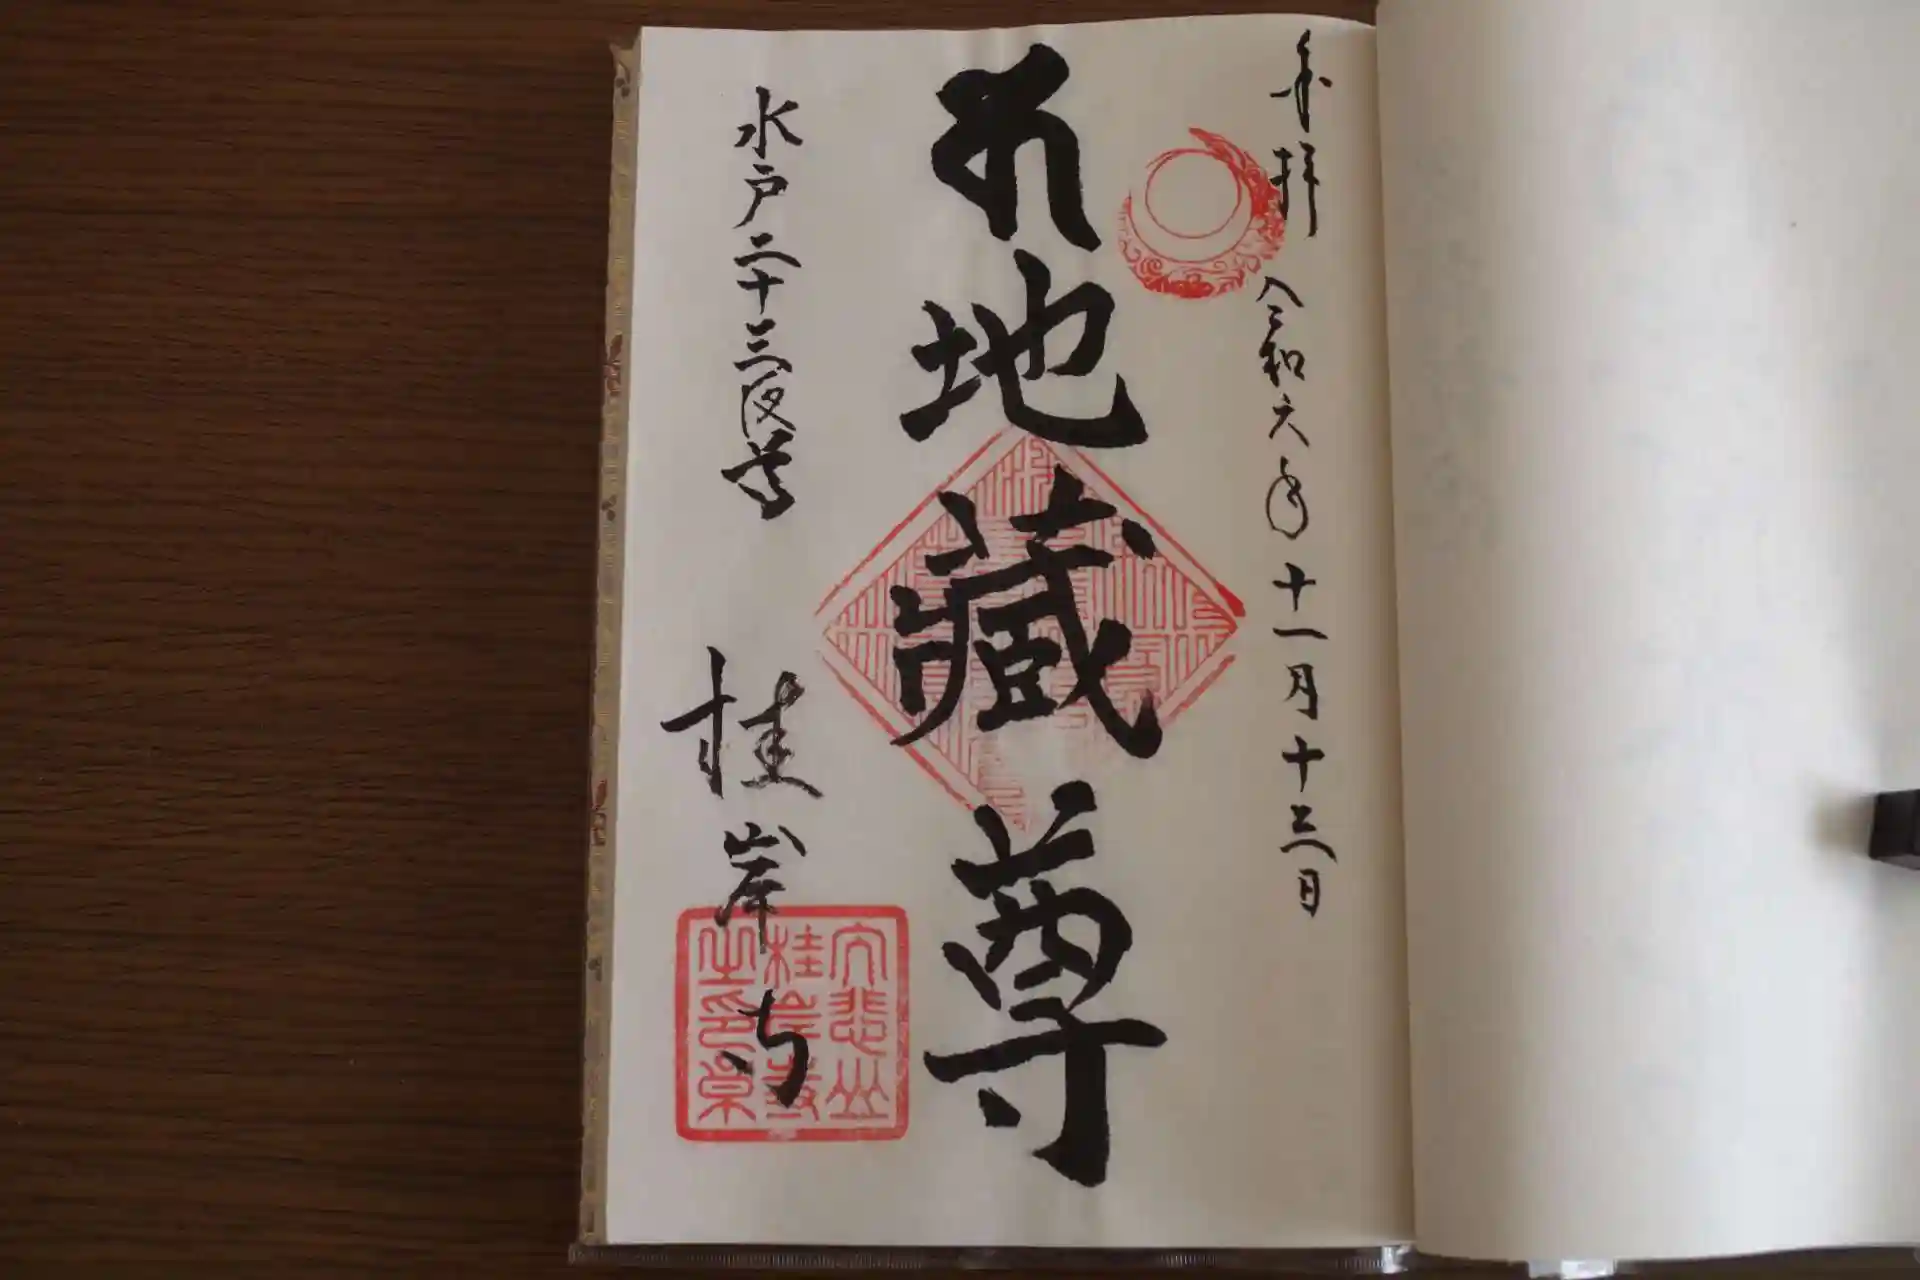 奉拝 令和六年十一月十三日
地藏尊
水戸二十三夜尊
桂岸寺
大悲山
桂岸教寺
之印